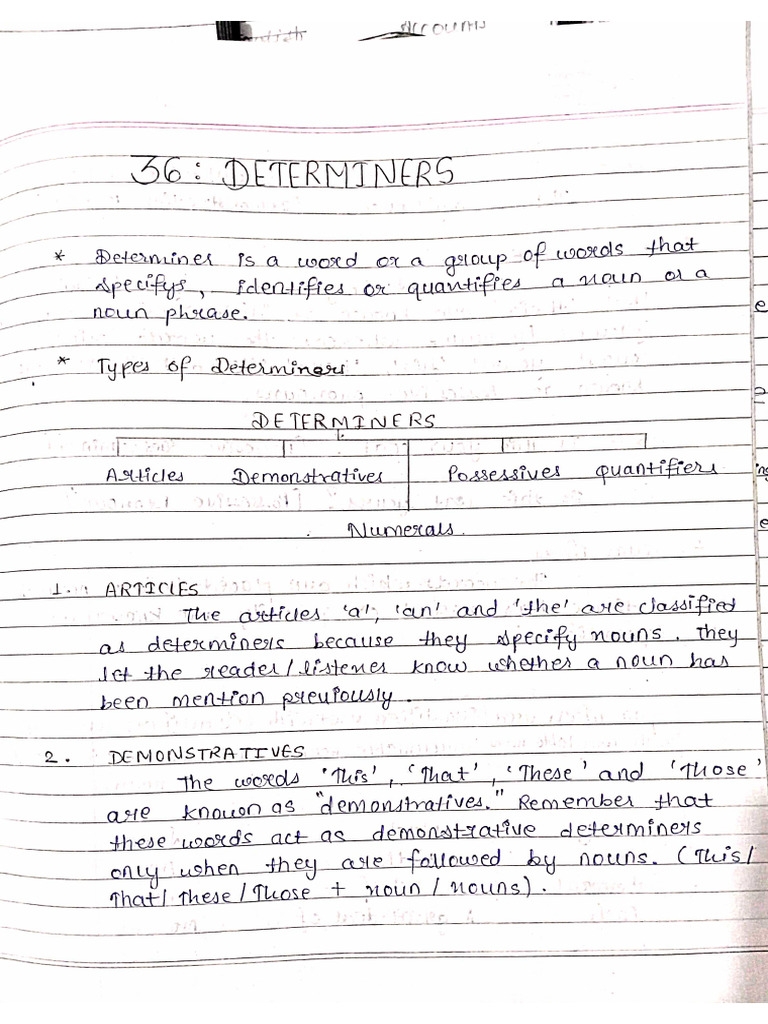 Accounts
36: DETERMINERS
* Determiner is a word or a group of words that
specifys, identifies or quantifies a noun or a
noun phrase.
* Types of Determiners:
DETERMINERS
Articles Demonstratives Possessives Quantifiers
Numerals.
1. ARTICLES
The articles 'a', 'an' and 'the' are classified
as determiners because they specify nouns. They
let the reader/listener know whether a noun has
been mention previously.
2. DEMONSTRATIVES
The words 'This', 'That', 'These' and 'Those'
are known as "demonstratives." Remember that
these words act as demonstrative determiners
only when they are followed by nouns. (This/
That/ These/Those + noun/nouns).